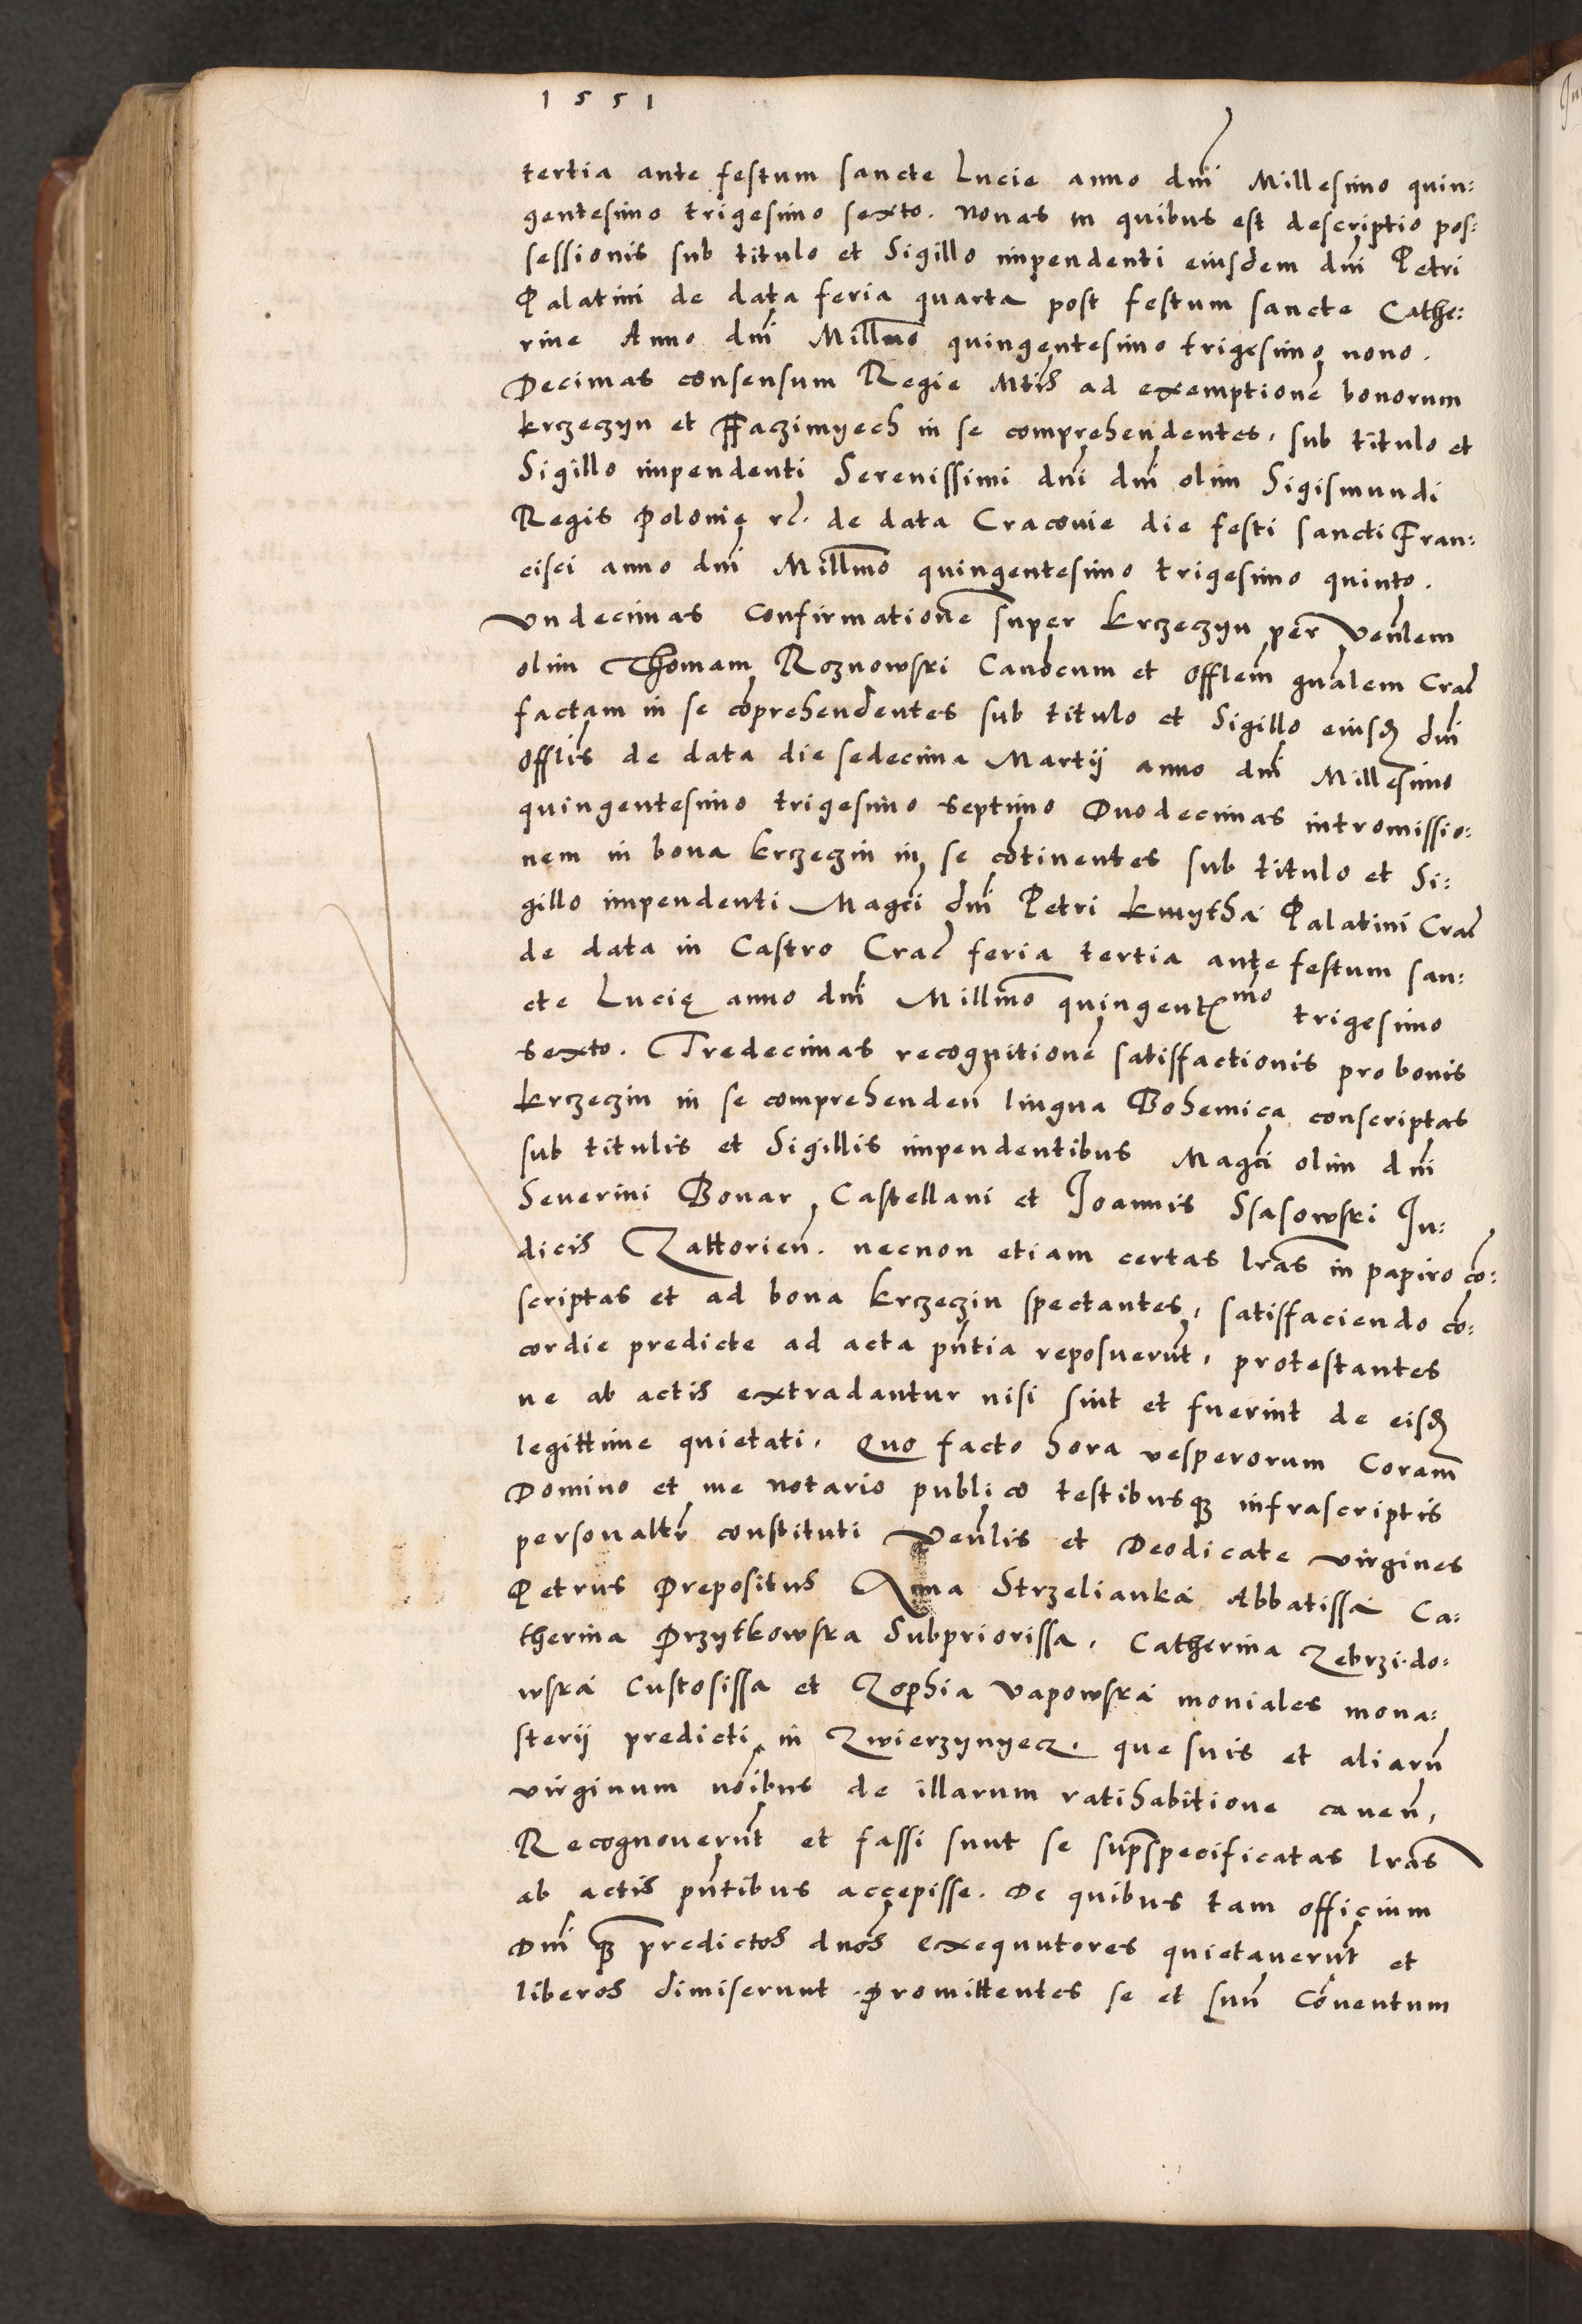 1551
tertia ante festum sancte Lucie anno dni Millesimo quin:
gentesimo trigesimo sexto. Nonas in quibus est descriptio pos:
sessionis sub titulo et Sigillo impendenti eiusdem dni Petri
Palatini de data feria quarta post festum sancte Cathe:
rine Anno dni Millmo quingentesimo trigesimo nono.
Decimas consensum Regie Mtis ad exemptione bonorum
krzeczyn et Ffaczimyech in se comprehendentes, sub titulo et
Sigillo impendenti Serenissimi dni dni olim Sigismundi
Regis Polonię rc. de data Cracovie die festi sancti Fran:
cisci anno dni Millmo quingentesimo trigesimo quinto.
Undecimas Confirmatione super krzeczyn per venlem
olim Thomam Roznowski Canocum et Offlem gnalem Crac
factam in se coprehendentes sub titulo et Sigillo eiusd dni
Offlis de data die sedecima Martij anno dni Millesimo
quingentesimo trigesimo septimo Duodecimas intromissio:
nem in bona krzeczin in se cotinentes sub titulo et Si:
gillo impendenti Magci dni Petri kmytha Palatini Crac
de data in Castro Crac feria tertia ante festum san:
cte Lucię anno dni Millmo quingentmo trigesimo
sexto. Tredecimas recognitione satisfactionis pro bonis
krzeczin in se comprehenden lingua Bohemica conscriptas
sub titulis et Sigillis impendentibus Magci olim dni
Severini Bonar Castellani et Joannis Ssasowski Ju:
dicis Zattorien. necnon etiam certas lras in papiro co:
scriptas et ad bona krzeczin spectantes, satisfaciendo co:
cordie predicte ad acta pntia reposuerut, protestantes
ne ab actis extradantur nisi sint et fuerint de eisd
legittime quietati. Quo facto hora vesperorum Coram
Domino et me notario publico testibusq infrascriptis
personaltr constituti Venlis et Deodicate virgines
Petrus Prepositus Anna Strzelianka Abbatissa Ca:
therina Przytkowska Subpriorissa, Catherina Zebrzido:
wska Custosissa et Zophia Vapowska moniales mona:
sterij predicti in Zwierzynyecz. que suis et aliaru
virginum noibus de illarum ratihabitione caven,
Recognoverut et fassi sunt se supraspecificatas lras
ab actis pntibus accepisse. De quibus tam officium
Dni q predictos dnos exequutores quietaverut et
liberos dimiserunt. Promittentes se et suu Coventum